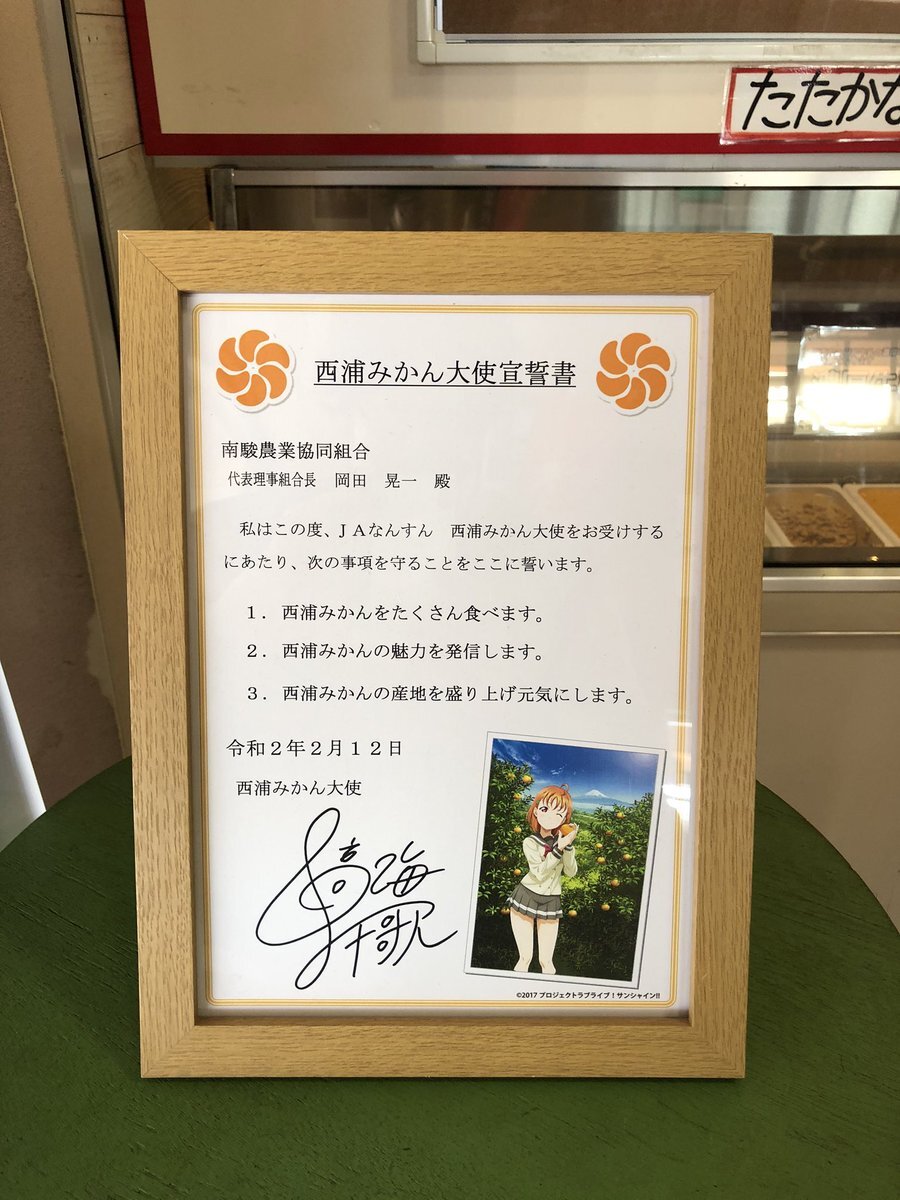 たたかな
西浦みかん大使宣誓書
南駿農業協同組合
代表理事組合長 岡田 晃一 殿
私はこの度、ＪＡなんすん 西浦みかん大使をお受けする
にあたり、次の事項を守ることをここに誓います。
１．西浦みかんをたくさん食べます。
２．西浦みかんの魅力を発信します。
３．西浦みかんの産地を盛り上げ元気にします。
令和２年２月１２日
西浦みかん大使
高海
千歌
©2017 プロジェクトラブライブ！サンシャイン!!